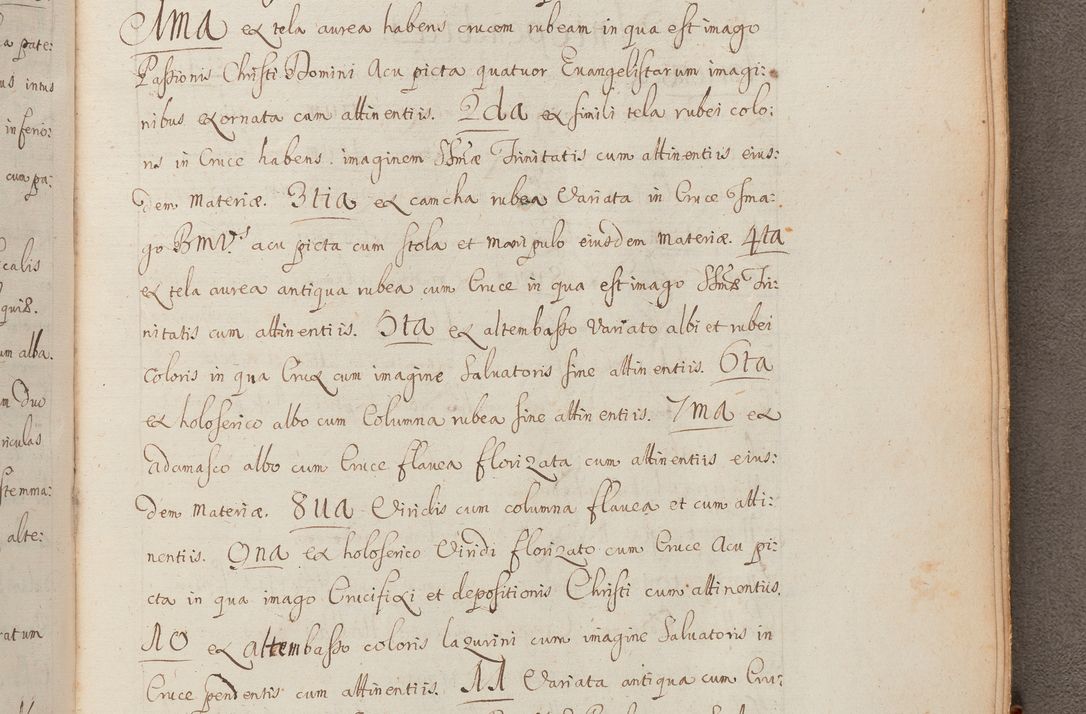 1ma ex tela aurea habens crucem rubeam in qua est imago
Passionis Christi Domini Acu picta quatuor Euangelistarum imagi:
nibus exornata cum attinentiis. 2da ex simili tela rubei colo:
ris in Cruce habens imaginem SSmæ Trinitatis cum attinentiis eius:
dem materiæ. 3tia ex camcha rubea Variata in Cruce Ima:
go BMV.s acu picta cum stola et manipulo eiusdem materiæ. 4ta
ex tela aurea antiqua rubea cum Cruce in qua est imago SSmæ Tri:
nitatis cum attinentiis. 5ta ex altembasso Variato albi et rubei
coloris in qua Crux cum imagine Saluatoris sine attinentiis. 6ta
ex holoserico albo cum Columna rubea sine attinentiis. 7ma ex
Adamasco albo cum Cruce flauea florizata cum attinentiis eius:
dem materiæ. 8ua Viridis cum columna flauea et cum atti:
nentiis. 9na ex holoserico Viridi florizato cum Cruce Acu pi:
cta in qua imago Crucifixi et depositionis Christi cum attinentiis.
10 ex altembasso coloris lazurini cum imagine Saluatoris in
Cruce pendentis cum attinentiis. 11 Variata antiqua cum Cru:
a pate:
us intus
inferio:
cum pa:
calis
quis.
um alba.
m Duo
riculas
stemma:
alte:
ratum